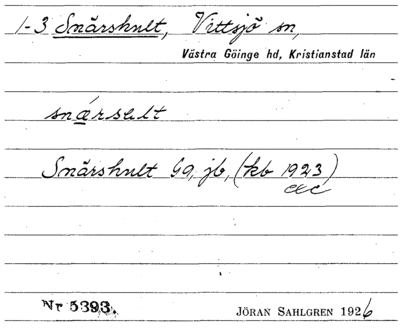 1-3 Snärshult, Vittsjö sn,
Västra Göinge hd, Kristianstad län
snǽrsəlt
Snärshult Gg, jb, (kb 1923)
etc
Nr 5393.
JÖRAN SAHLGREN 1926